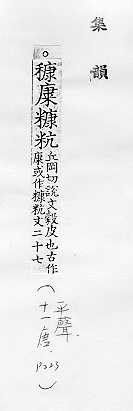 集韻
。穅康糠粇丘岡切說文穀皮也古作
康或作糠粇文二十七
(平聲.
十一唐.
P223)